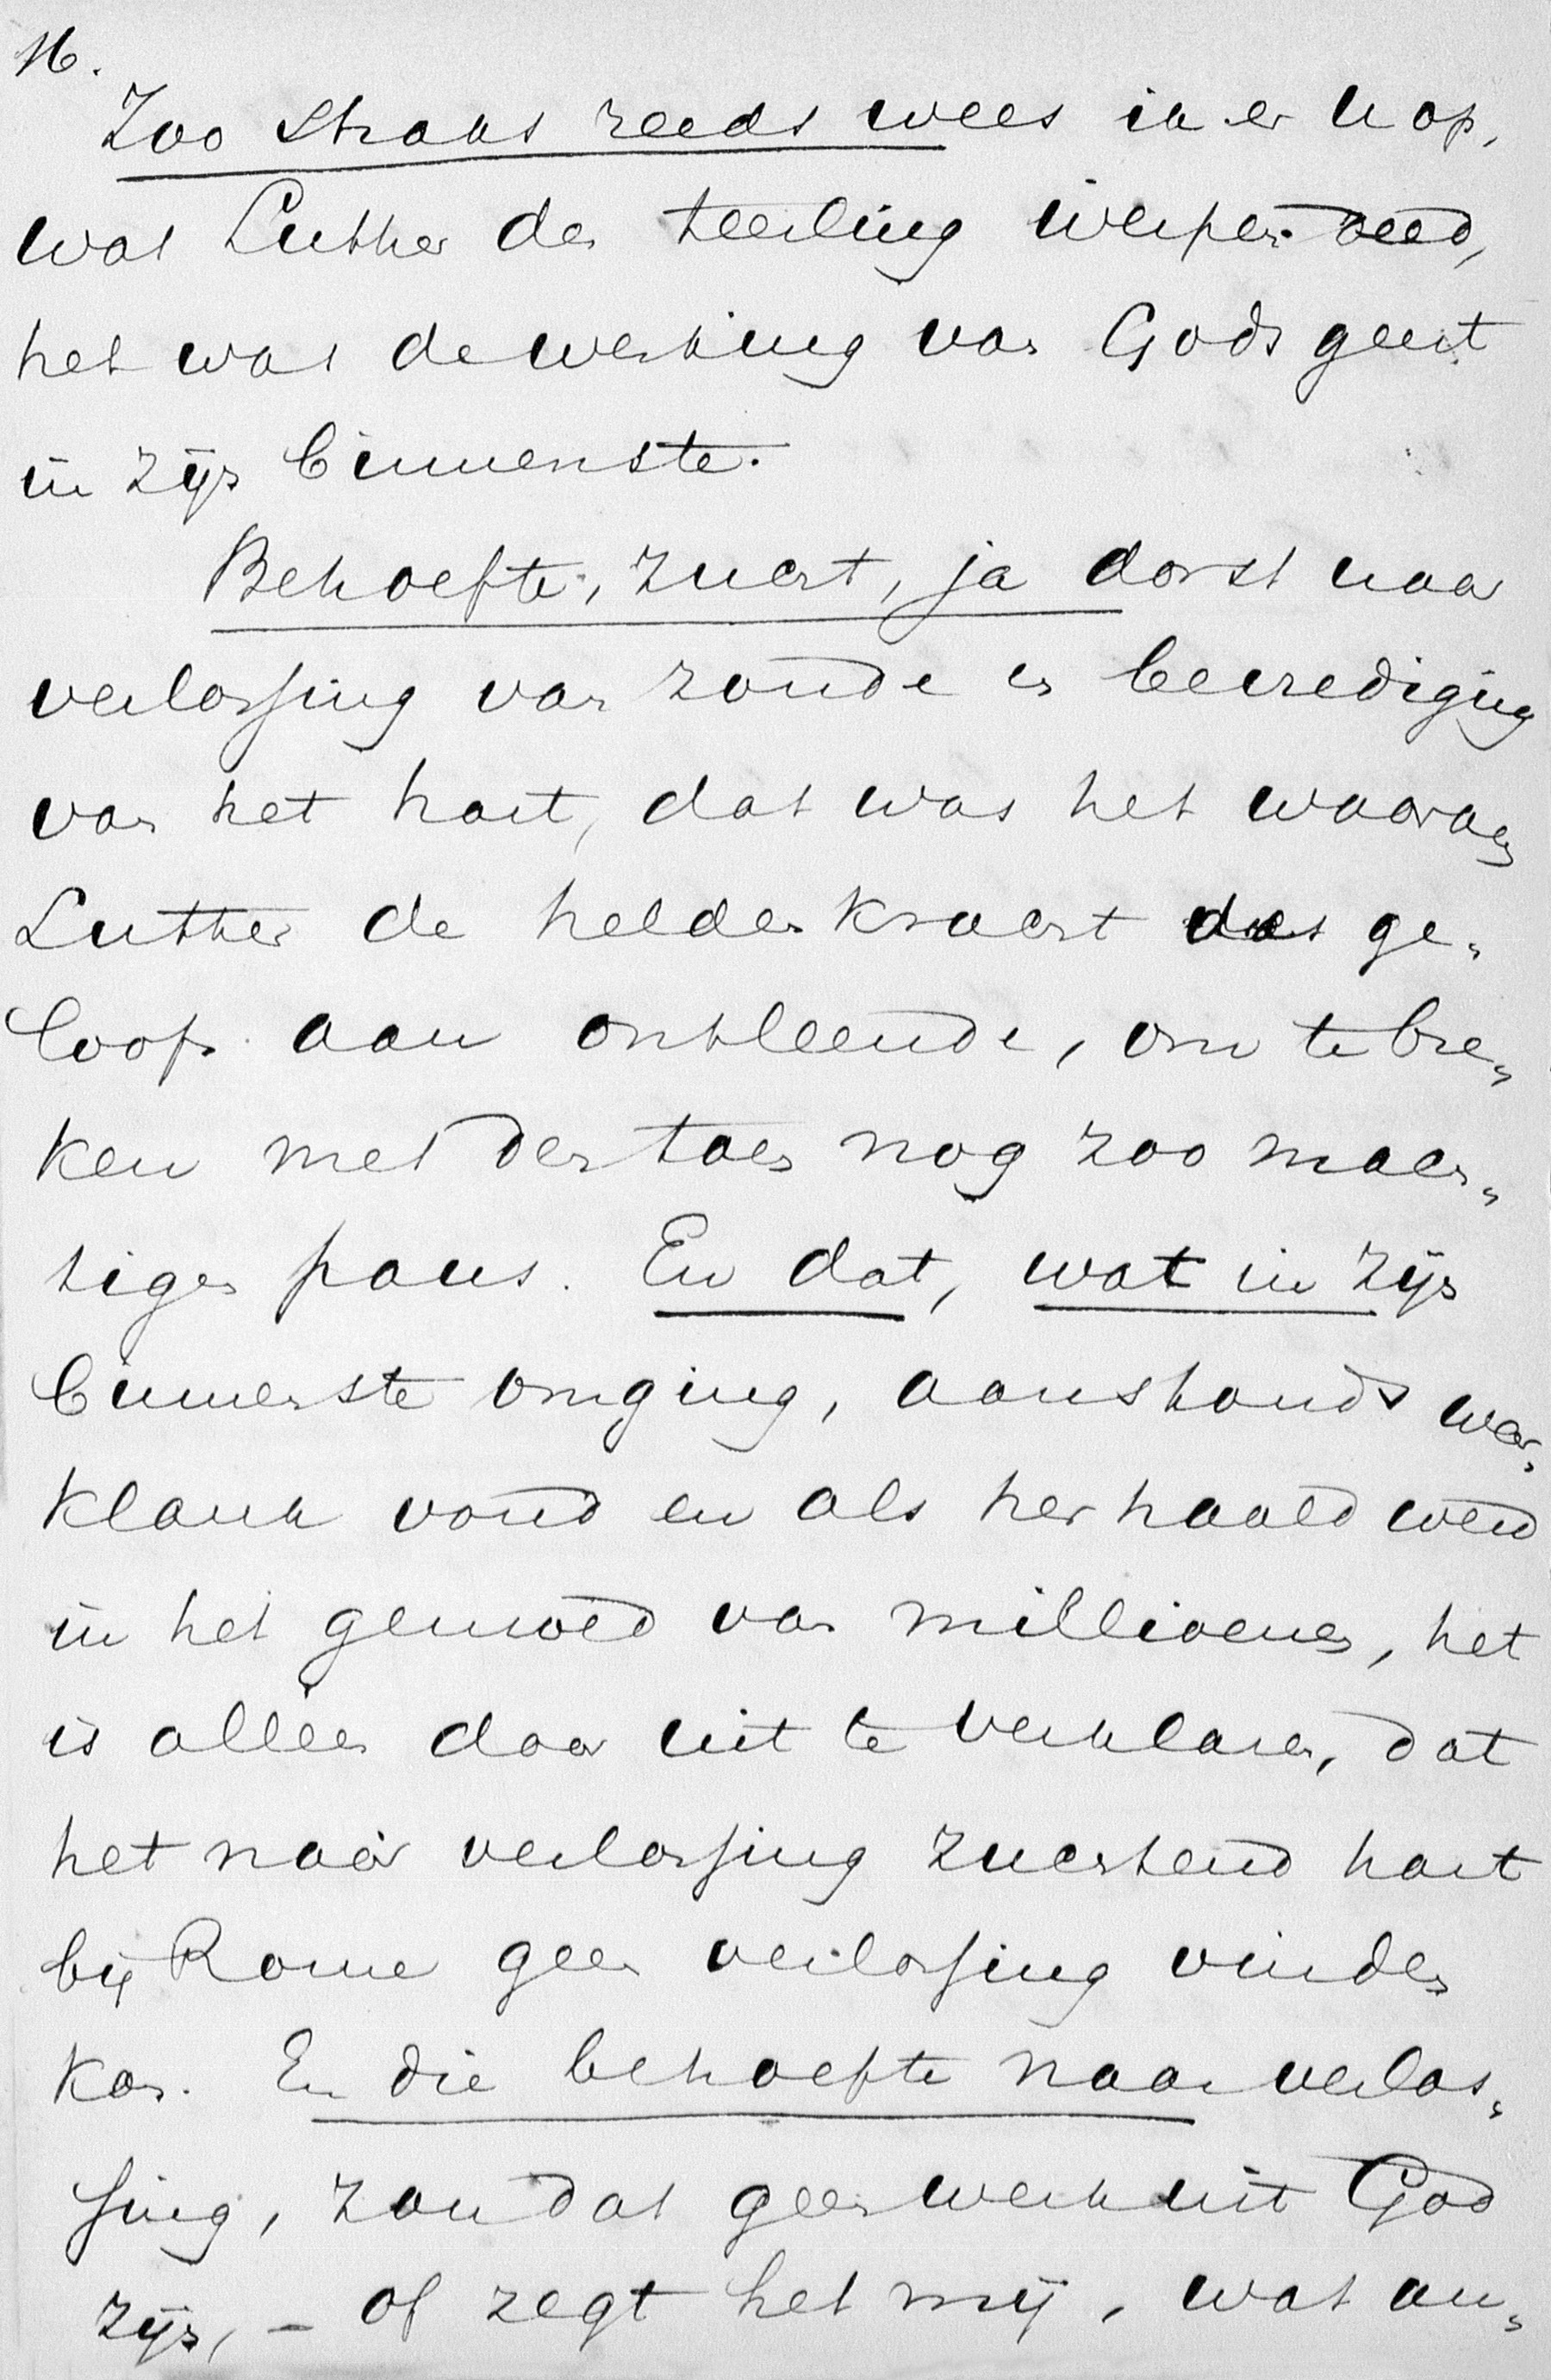 16.
Zoo straks reeds wees ik er U op,
wat Luther den teerling werpen deed,
het was de werking van Gods geest
in zijn binnenste.
Behoefte, zucht, ja dorst naar
verlossing van zonde en bevrediging
van het hart, dat was het waaraan
Luther de heldenkracht des ge„
loofs aan ontleende, om te bre„
ken met den toen nog zoo mach„
tigen paus. En dat, wat in zijn
binnenste omging, aanstonds weer„
klank vond en als herhaald werd
in het gemoed van millioenen, het
is alleen daar uit te verklaren, dat
het naar verlossing zuchtend hart
bij Rome geen verlossing vinden
kon. En die behoefte naar verlos„
sing, zou dat geen werk uit God
zijn, – of zegt het mij, wat an„